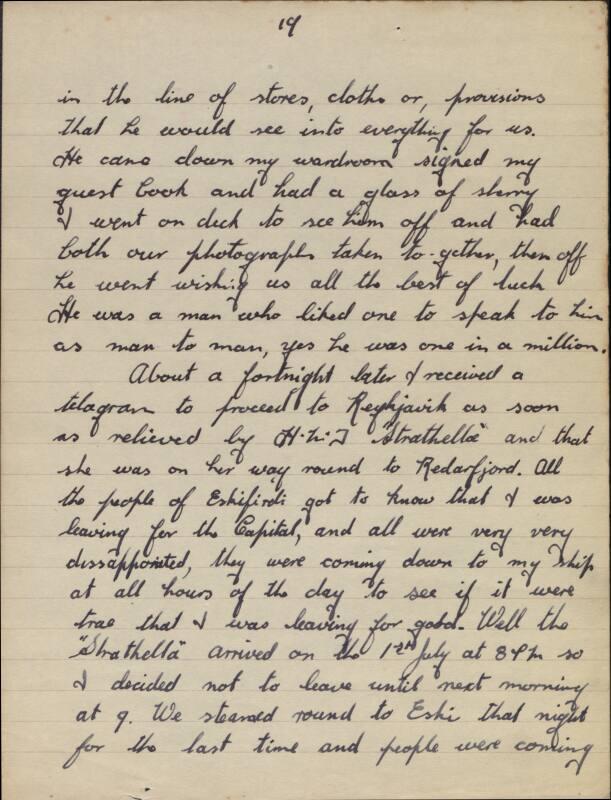 19
in the line of stores, cloths or, provisions
that he would see into everything for us.
He came down my wardroom signed my
guest book and had a glass of sherry
I went on deck to see him off and had
both our photographs taken to-gether, then off
he went wishing us all the best of luck
He was a man who liked one to speak to him
as man to man, yes he was one in a million.
About a fortnight later I received a
telagram to proceed to Reykjavik as soon
as relieved by H.M.T "Strathella" and that
she was on her way round to Redarfjord. All
the people of Eskifirdi got to know that I was
leaving for the Capital, and all were very very
dissappointed, they were coming down to my ship
at all hours of the day to see if it were
true that I was leaving for good. Well the
"Strathella" arrived on the July at 8 P.m so
I decided not to leave until next morning
at 9. We steamed round to Eski that night
for the last time and people were coming